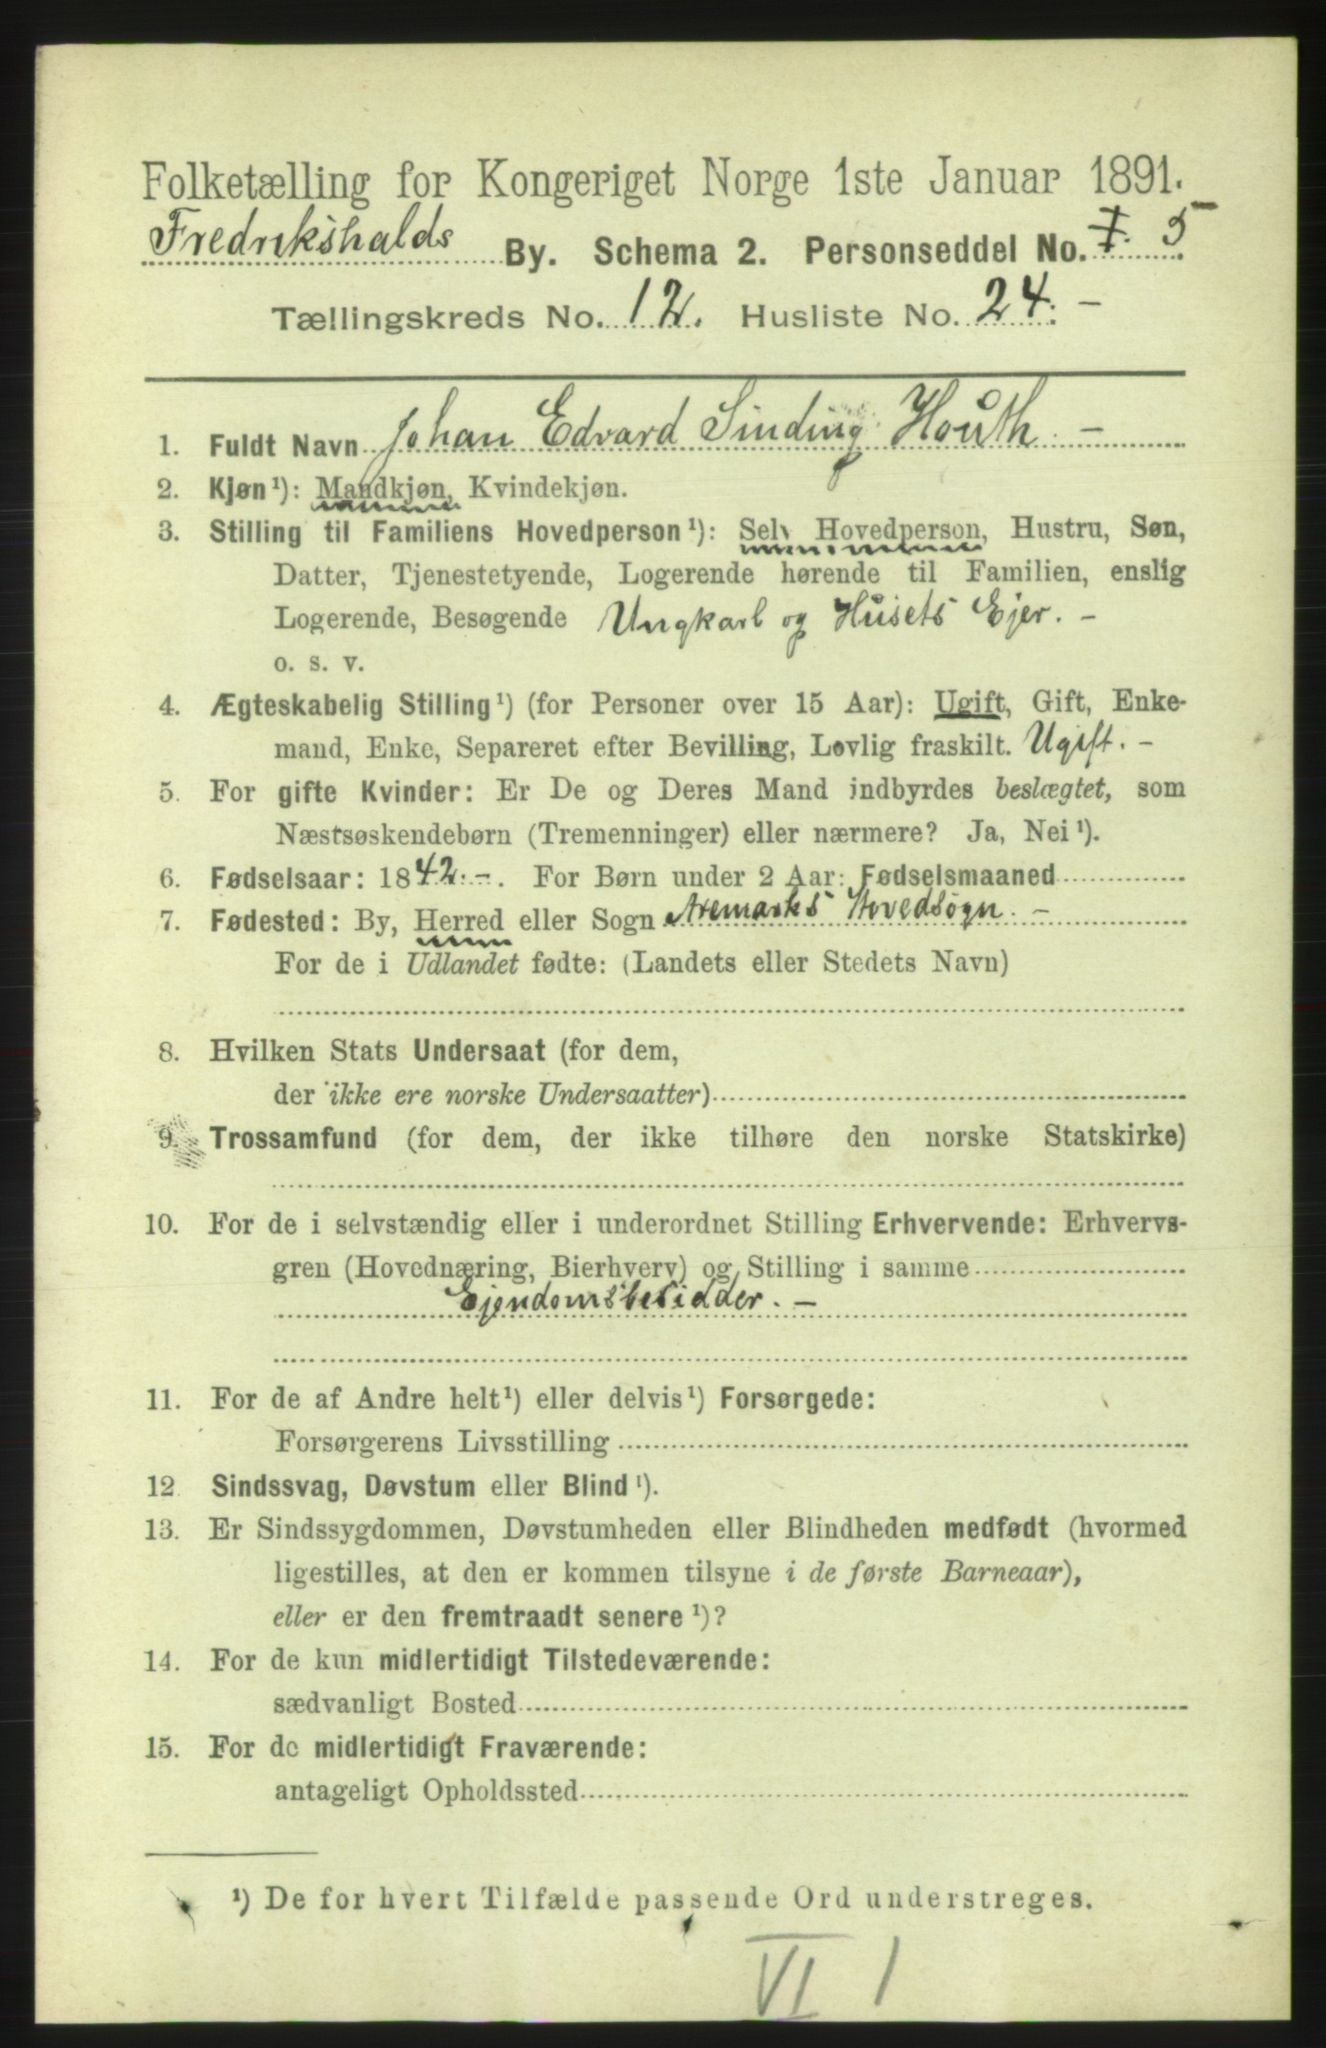 Folketælling for Kongeriget Norge 1ste Januar 1891.
Fredrikshalds By. Schema 2. Personseddel No. 5
Tællingskreds No. 12. Husliste No. 24. –
1. Fuldt Navn Johan Edvard Sinding Houth. –
2. Kjøn¹): Mandkjøn, Kvindekjøn.
3. Stilling til Familiens Hovedperson¹): Selv Hovedperson, Hustru, Søn,
Datter, Tjenestetyende, Logerende hørende til Familien, enslig
Logerende, Besøgende Ungkarl og Husets Ejer. –
o. s. v.
4. Ægteskabelig Stilling¹) (for Personer over 15 Aar): Ugift, Gift, Enke-
mand, Enke, Separeret efter Bevilling, Lovlig fraskilt. Ugift. –
5. For gifte Kvinder: Er De og Deres Mand indbyrdes beslægtet, som
Næstsøskendebørn (Tremenninger) eller nærmere? Ja, Nei¹).
6. Fødselsaar: 1842. –. For Børn under 2 Aar: Fødselsmaaned
7. Fødested: By, Herred eller Sogn Aremarks Hovedsogn. –
For de i Udlandet fødte: (Landets eller Stedets Navn)
8. Hvilken Stats Undersaat (for dem,
der ikke ere norske Undersaatter)
9. Trossamfund (for dem, der ikke tilhøre den norske Statskirke)
10. For de i selvstændig eller i underordnet Stilling Erhvervende: Erhvervs-
gren (Hovednæring, Bierhverv) og Stilling i samme
Ejendomsbesidder. –
11. For de af Andre helt¹) eller delvis¹) Forsørgede:
Forsørgerens Livsstilling
12. Sindssvag, Døvstum eller Blind¹).
13. Er Sindssygdommen, Døvstumheden eller Blindheden medfødt (hvormed
ligestilles, at den er kommen tilsyne i de første Barneaar),
eller er den fremtraadt senere¹)?
14. For de kun midlertidigt Tilstedeværende:
sædvanligt Bosted
15. For de midlertidigt Fraværende:
antageligt Opholdssted
¹) De for hvert Tilfælde passende Ord understreges.
VI 1